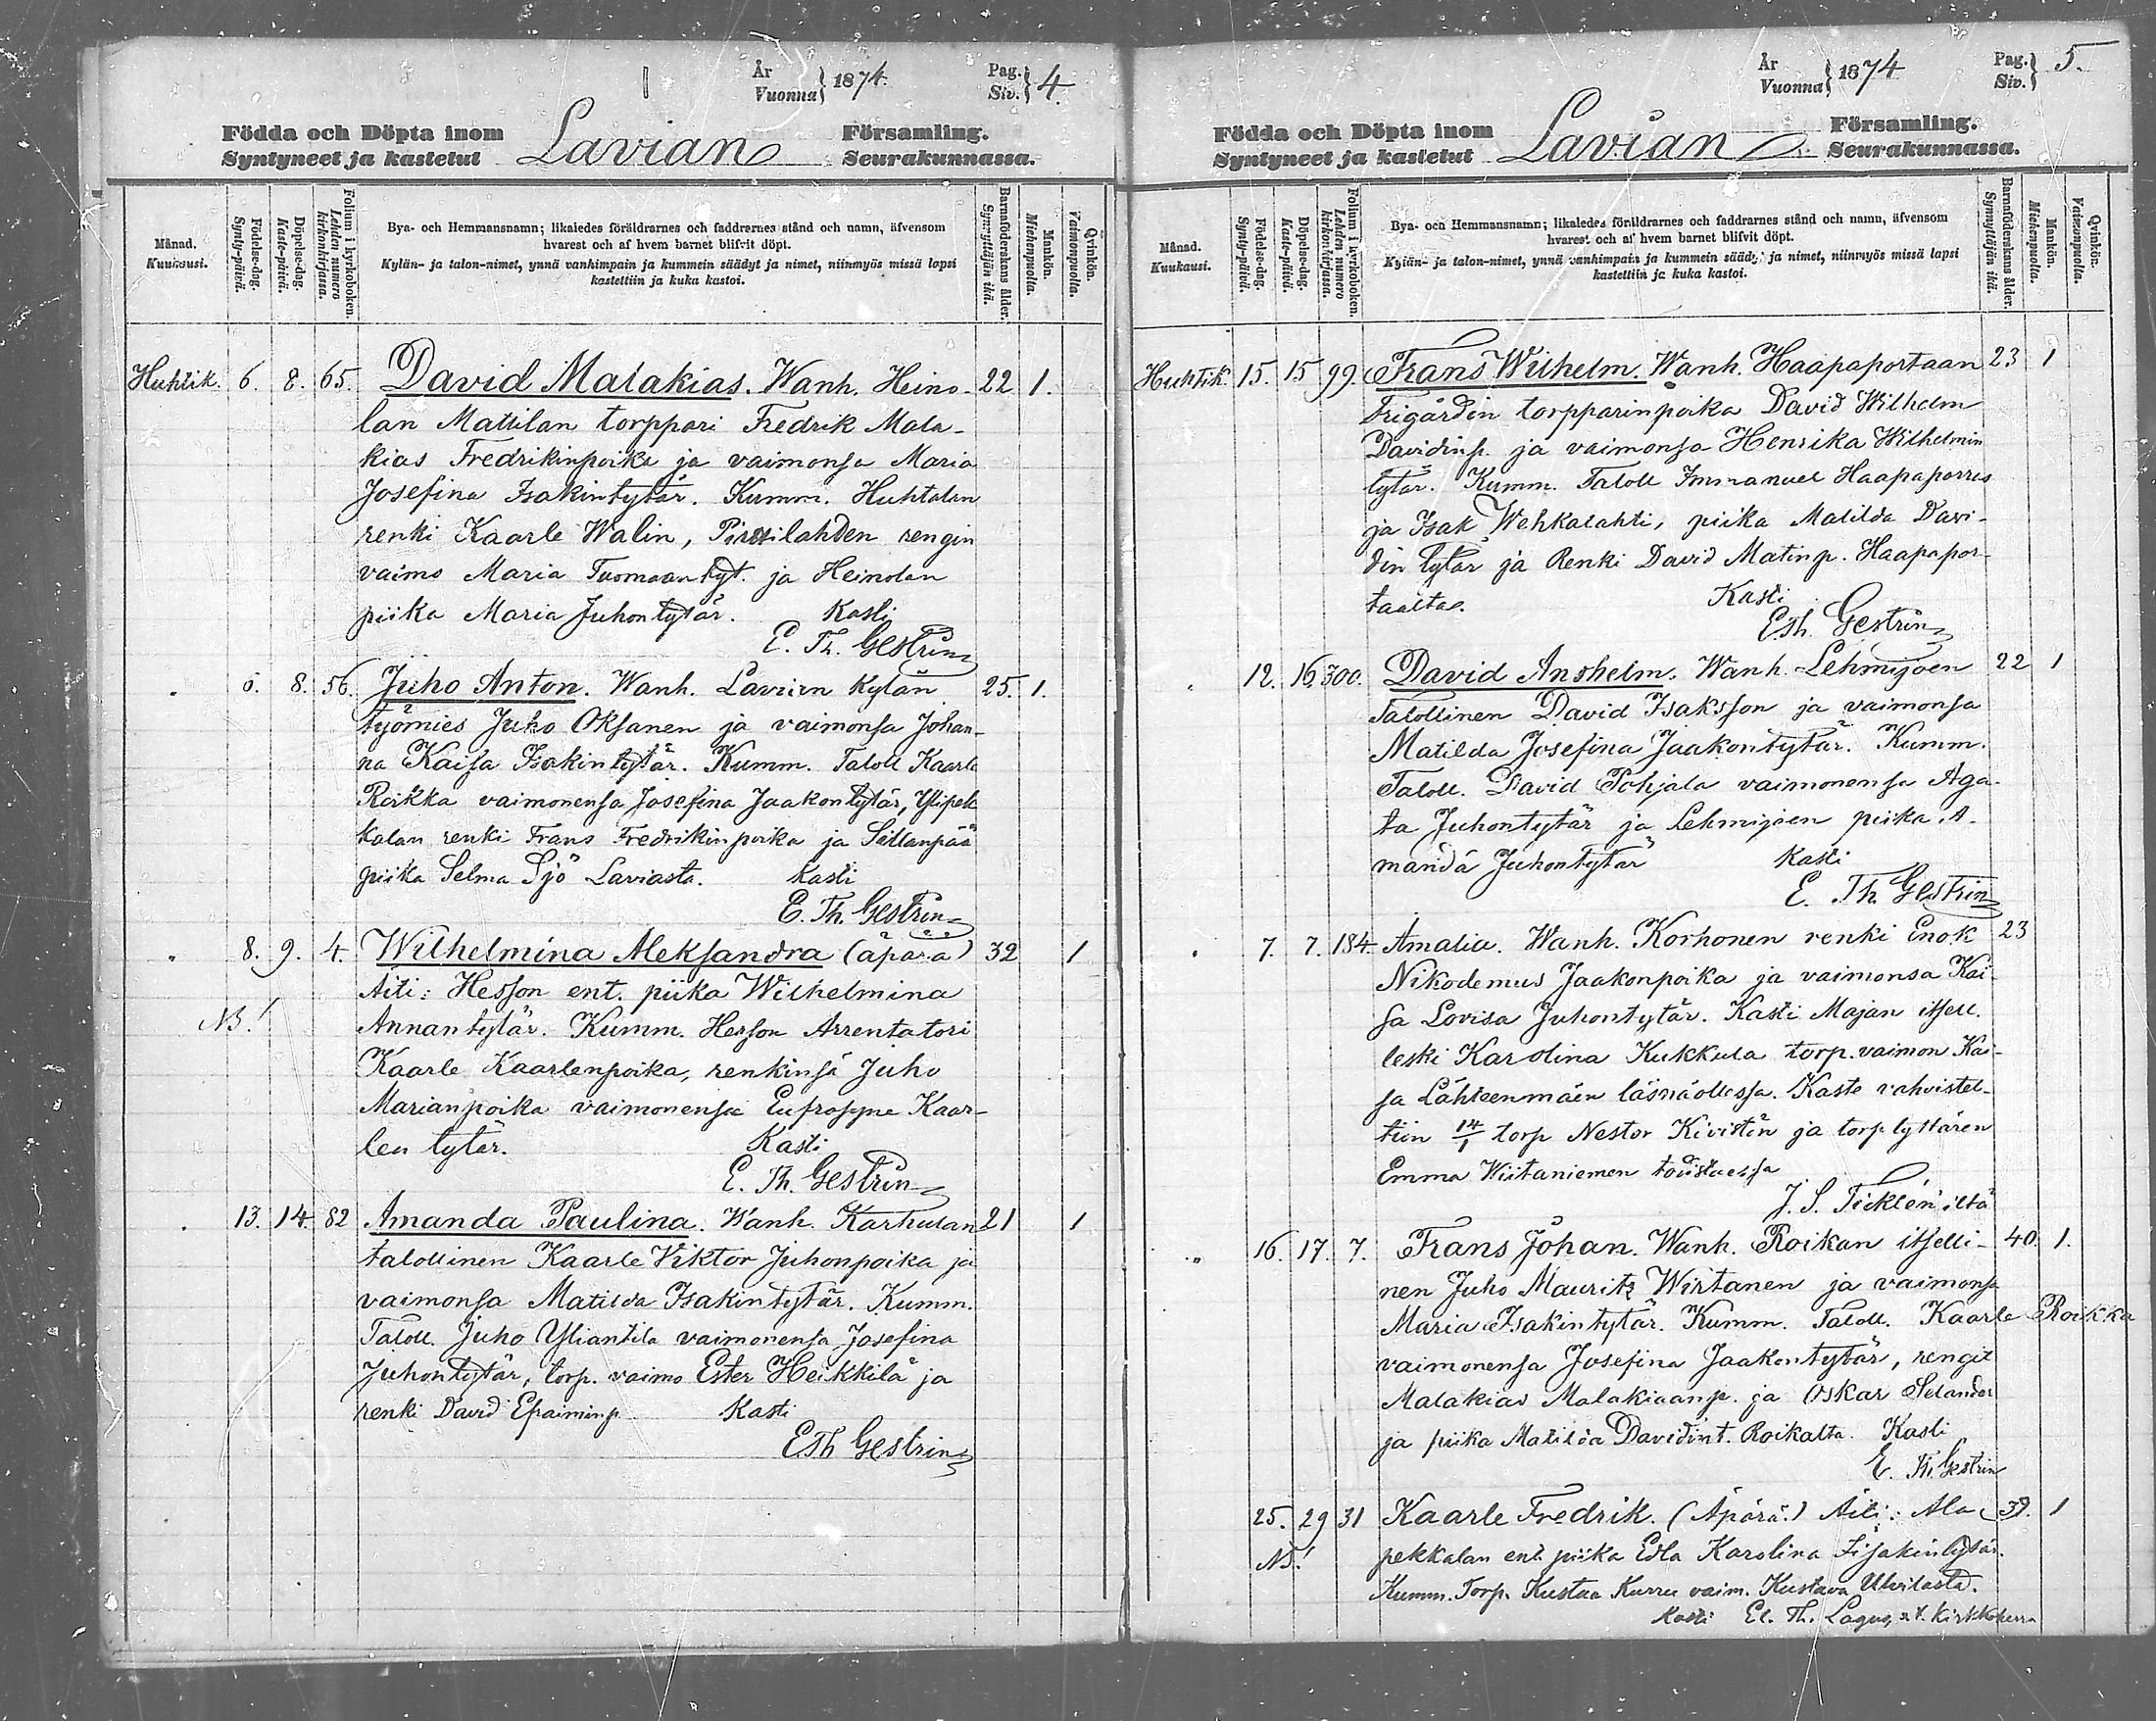 År
Vuonna } 1874.
Pag.
Siv. } 4.
Födda och Döpta inom
Syntyneet ja kastetut
Lavian
Församling.
Seurakunnassa.
Månad.
Kuukausi.
Födelse-dag.
Synty-päivä.
Döpelse-dag.
Kaste-päivä.
Folium i kyrkoboken.
Lehden numero kirkonkirjassa.
Bya- och Hemmansnamn; likaledes föräldrarnes och faddrarnes stånd och namn, äfvensom
hvarest och af hvem barnet blifvit döpt.
Kylän- ja talon-nimet, ynnä vanhimpain ja kummein säädyt ja nimet, niinmyös missä lapsi
kastettiin ja kuka kastoi.
Barnaföderskans ålder.
Synnyttäjän ikä.
Mankön.
Miehenpuolta.
Qvinkön.
Vaimonpuolta.
Huhtik. 6. 8. 65. David Malakias. Wanh. Heino- 22 1.
lan Mattilan torppari Fredrik Mala-
kias Fredrikinpoika ja vaimonsa Maria
Josefina Isakintytär. Kumm. Huhtalan
renki Kaarle Walin, rengin
vaimo Maria Tuomaantyt. ja Heinolan
piika Maria Juhontytär. Kasti
E. Th. Gestrin
" 6. 8. 56. Juho Anton. Wanh. Lavian Kylän 25. 1.
työmies Juho Oksanen ja vaimonsa Johan-
na Kaisa Isakintytär. Kumm. Taloll Kaarle
Roikka vaimonensa Josefina Jaakontytär, Ylipek
kalan renki Frans Fredrikinpoika ja Sillanpää
piika Selma Sjö Laviasta. Kasti
E. Th. Gestrin
" 8. 9. 4. Wilhelmina Aleksandra (äpärä) 32 1
Äiti: Hesson ent. piika Wilhelmina
NB! Annantytär. Kumm. Hesson Arrentatori
Kaarle Kaarlenpoika, renkinsä Juho
Marianpoika vaimonensa Eufrosyne Kaar-
len tytär. Kasti
E. Th. Gestrin
" 13. 14. 82 Amanda Paulina. Wanh. Karhulan 21 1
talollinen Kaarle Viktor Juhonpoika ja
vaimonsa Matilda Isakintytär. Kumm.
Taloll. Juho Yliantila vaimonensa Josefina
Juhontytär, torp. vaimo Ester Heikkilä ja
renki David Efraiminp. Kasti
E Th Gestrin
År
Vuonna } 1874
Pag.
Siv. } 5.
Födda och Döpta inom
Syntyneet ja kastetut
Lavian
Församling.
Seurakunnassa.
Månad.
Kuukausi.
Födelse-dag.
Synty-päivä.
Döpelse-dag.
Kaste-päivä.
Folium i kyrkoboken.
Lehden numero kirkonkirjassa.
Bya- och Hemmansnamn; likaledes föräldrarnes och faddrarnes stånd och namn, äfvensom
hvarest och af hvem barnet blifvit döpt.
Kylän- ja talon-nimet, ynnä vanhimpain ja kummein säädyt ja nimet, niinmyös missä lapsi
kastettiin ja kuka kastoi.
Barnaföderskans ålder.
Synnyttäjän ikä.
Mankön.
Miehenpuolta.
Qvinkön.
Vaimonpuolta.
Huhtik. 15. 15 99. Frans Wilhelm. Wanh. Haapaportaan 23 1
Frigårdin torpparinpoika David Wilhelm
Davidinp. ja vaimonsa Henrika Wilhelmin
tytär. Kumm. Taloll Immanuel Haapaporras
ja Isak Wehkalahti, piika Matilda Davi-
din tytär ja Renki David Matinp. Haapapor-
taalta. Kasti
E Th. Gestrin
" 12. 16 300. David Anshelm. Wanh. Lehmijoen 22 1
Talollinen David Isaksson ja vaimonsa
Matilda Josefina Jaakontytär. Kumm.
Taloll. David Pohjala vaimonensa Aga-
ta Juhontytär ja Lehmijoen piika A-
manda Juhontytär Kasti
E. Th Gestrin
" 7. 7. 184. Amalia. Wanh. Korhonen renki Enok 23
Nikodemus Jaakonpoika ja vaimonsa Kai-
sa Lovisa Juhontytär. Kasti Majan itsell.
leski Karolina Kukkula torp. vaimon Kai-
sa Lähteenmäen läsnäollessa. Kaste vahvistet-
tiin 14/1 torp Nestor Kivistön ja torp tyttären
Emma Wiitaniemen todistaessa
J. S. Ticklén'iltä
" 16. 17. 7. Frans Johan. Wanh. Roikan itselli- 40. 1.
nen Juho Mauritz Wirtanen ja vaimonsa
Maria Isakintytär. Kumm. Taloll. Kaarle Roikka
vaimonensa Josefina Jaakontytär, rengit
Malakias Malakiaanp. ja Oskar Selander
ja piika Matilda Davidint. Roikalta. Kasti
E. Th. Gestrin
25. 29 31 Kaarle Fredrik. (Äpärä.) Äiti: Ala- 39. 1
NB! pekkalan ent piika Edla Karolina Iisakintytär.
Kumm. Torp. Kustaa Kurru vaim. Kustava Ulvilasta.
Kasti El. Th. Lagus, v.t. Kirkkoherra